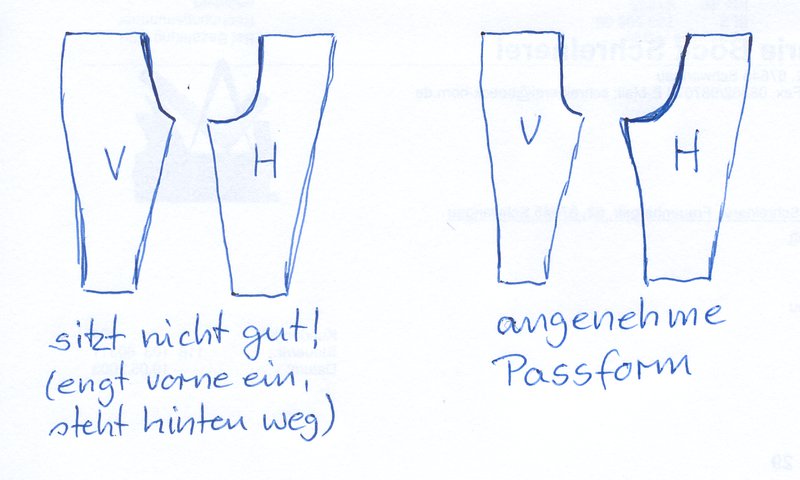 V
H
sitzt nicht gut!
(engt vorne ein,
steht hinten weg)
V
H
angenehme
Passform